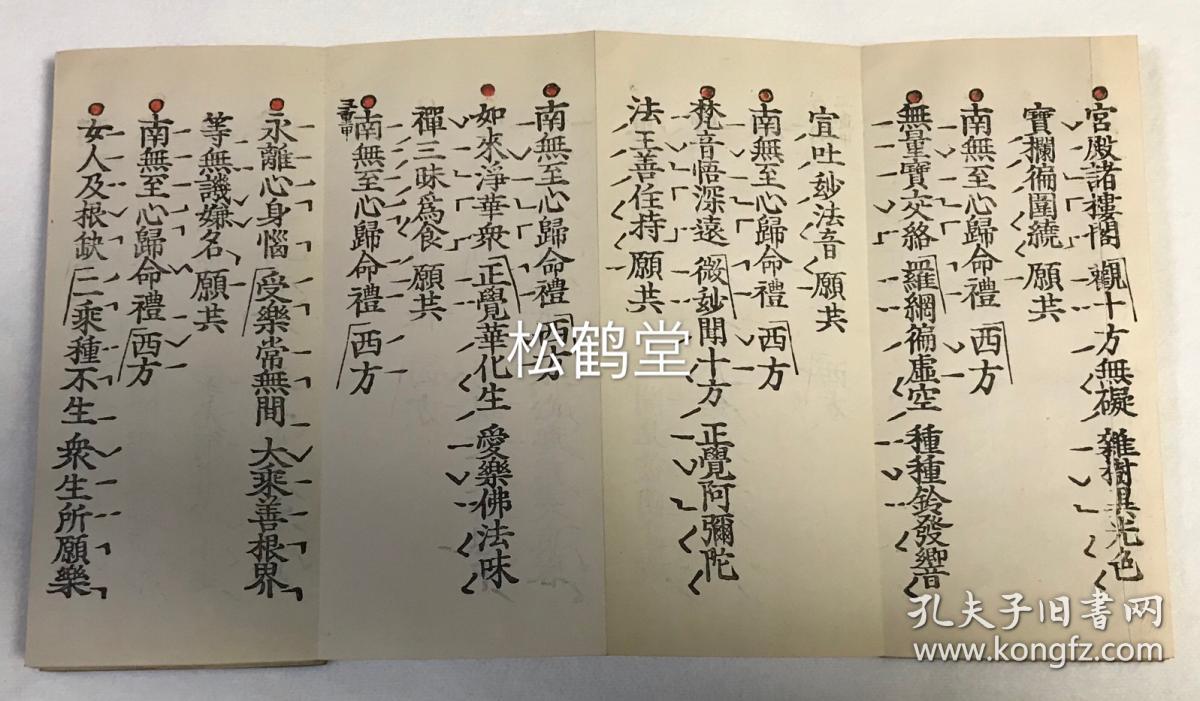 宮殿諸樓閣 觀十方無礙 雜樹異光色
寶欄徧圍繞 願共
南無至心歸命禮 西方
無量寶交絡 羅網徧虛空 種種鈴發響
宣吐妙法音 願共
南無至心歸命禮 西方
梵音悟深遠 微妙聞十方 正覺阿彌陀
法王善住持 願共
南無至心歸命禮 西方
如來淨華衆 正覺華化生 愛樂佛法味
禪三昧爲食 願共
南無至心歸命禮 西方
永離心身惱 受樂常無間 大乘善根界
等無譏嫌名 願共
南無至心歸命禮 西方
女人及根缺 二乘種不生 衆生所願樂
松鹤堂
孔夫子旧书网
www.kongfz.com